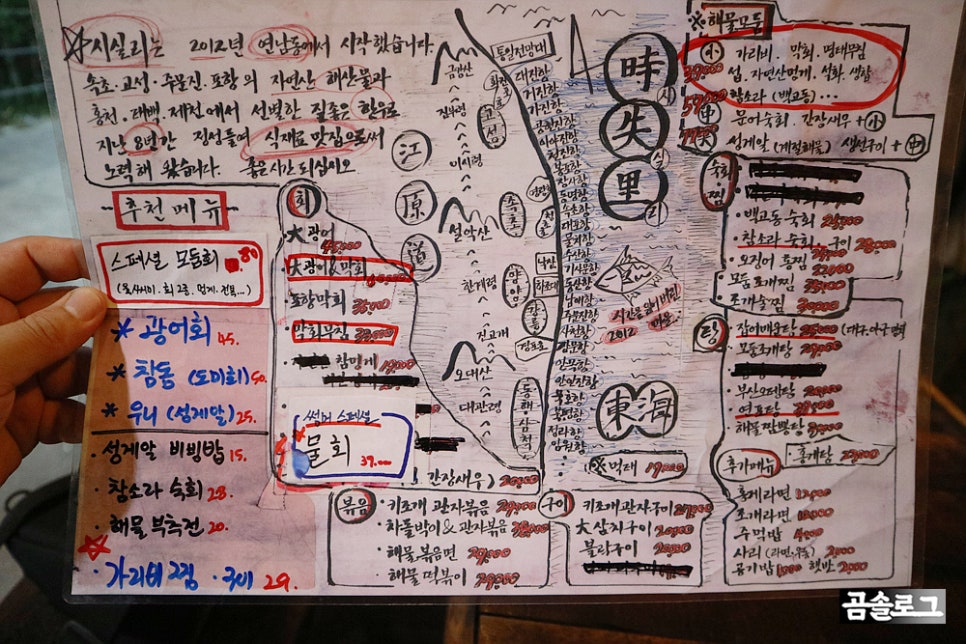 시실리는 2012년 연남동에서 시작했습니다.
속초.고성.주문진.포항의 자연산 해산물과
홍천.태백.제천에서 선별한 질좋은 한우로
지난 8년간 정성들여 식재료 맛집으로써
노력해 왔습니다. 좋은시간 되십시오
추천메뉴
스페셜 모둠회 80
* 광어회 45.
* 참돔 (도미회) 50.
* 우니 (성게알) 25.
성게알 비빔밥 15.
참소라 숙회 28.
해물 부추전 20.
가리비 찜 · 구이 29.
회
大광어 45,000
大광어&막회
포항막회 35,000
막회무침 35,000
참멍게
썸머 스페셜
물회 37.000
간장새우) 20,000
江
原
道
금강산
진부령
미시령
설악산
한계령
진고개
오대산
대관령
통일전망대
화진포
고성
속초
낙산
양양
하조대
강릉
동해
삼척
대진항
거진항
가진항
공현진항
아야진항
천진항
봉포항
장사항
동명항
속초항
대포항
물치항
수산항
기사문항
동산항
남애항
주문진항
사천항
안목항
안인진항
묵호항
임원항
時 시
失 실
里 리
시간을 잃어버린
마을..
2012
東海
먹태 19,000
볶음
키조개 관자볶음 29,000
차돌박이&관자볶음 38,000
해물볶음면 29,000
해물떡볶이 29,000
구이
키조개관자구이 27,000
大삼치구이 20,000
볼락구이 20,000
※해물모둠
小 가리비. 막회. 명태무침
39,000 섭. 자연산멍게. 석화 생참
참소라 (백고동)...
59,000 中 문어숙회. 간장새우 + 小
大 성게알 (계절해물) 생선구이 + 中
숙회·찜
백고동 숙회 25,000
참소라 숙회. 구이 28,000
오징어 통찜 22,000
모듬조개찜 35,000
조개술찜 30,000
탕
잡어매운탕 25,000 (대구,아구,명태)
모둠조개탕
부산오뎅탕 20,000
연포탕
해물짬뽕탕
홍게탕 23,000
추가메뉴
홍게라면 12,000
조개라면 10,000
주먹밥 4,000
사리 (라면,우동) 2,000
공기밥 1,000 햇반 2,000
곰솔로그